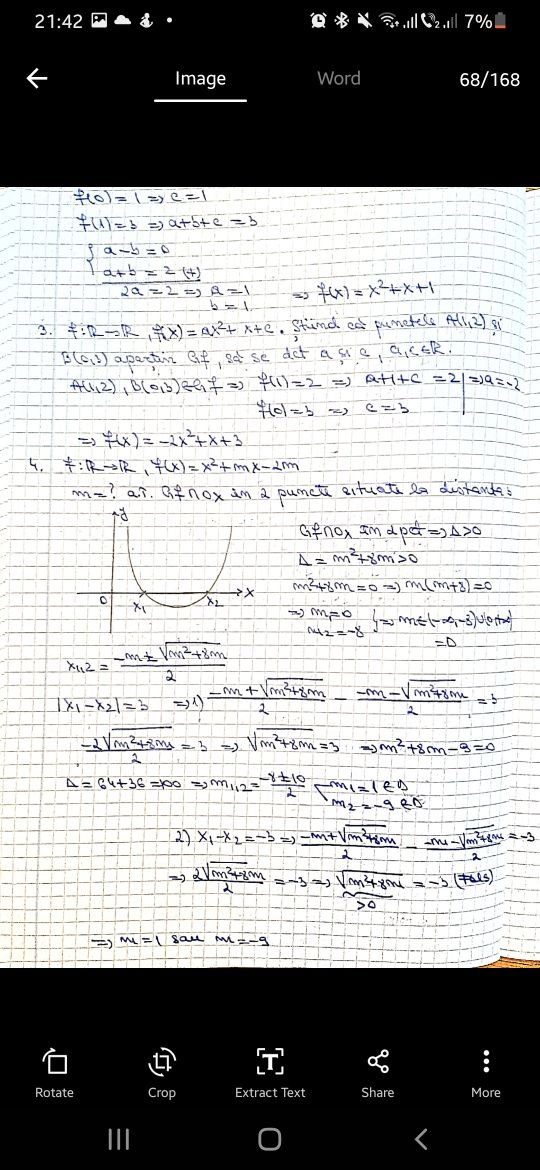 21:42
7%
Image
Word
68/168
f(0) = 1 => c = 1
f(1) = 3 => a+b+c = 3
{ a-b = 0
a+b = 2 (+)
2a = 2 => a = 1
b = 1
=> f(x) = x²+x+1
3. f:R→R, f(x) = ax²+x+c. Știind că punctele A(1,2) și
B(0,3) aparțin Gf, să se det a și c, a,c∈R.
A(1,2), B(0,3)∈Gf => f(1) = 2 => a+1+c = 2 | => a = -2
f(0) = 3 => c = 3
=> f(x) = -2x²+x+3
4. f:R→R, f(x) = x²+mx-2m
m = ? a.î. Gf∩Ox în 2 puncte situate la distanța 3
y
O
x₁
x₂
x
Gf∩Ox în 2 pct => Δ>0
Δ = m²+8m>0
m²+8m = 0 => m(m+8) = 0
=> m₁ = 0
m₂ = -8
} => m∈(-∞,-8)∪(0,+∞)
= D
x₁,₂ = (-m±√(m²+8m))/2
|x₁-x₂| = 3 => 1) (-m+√(m²+8m))/2 - (-m-√(m²+8m))/2 = 3
2√(m²+8m)/2 = 3 => √(m²+8m) = 3 => m²+8m-9 = 0
Δ = 64+36 = 100 => m₁,₂ = (-8±10)/2
m₁ = 1 ∈ D
m₂ = -9 ∈ D
2) x₁-x₂ = -3 => (-m+√(m²+8m))/2 - (-m-√(m²+8m))/2 = -3
=> 2√(m²+8m)/2 = -3 => √(m²+8m) = -3 (Fals)
>0
=> m = 1 sau m = -9
Rotate
Crop
Extract Text
Share
More